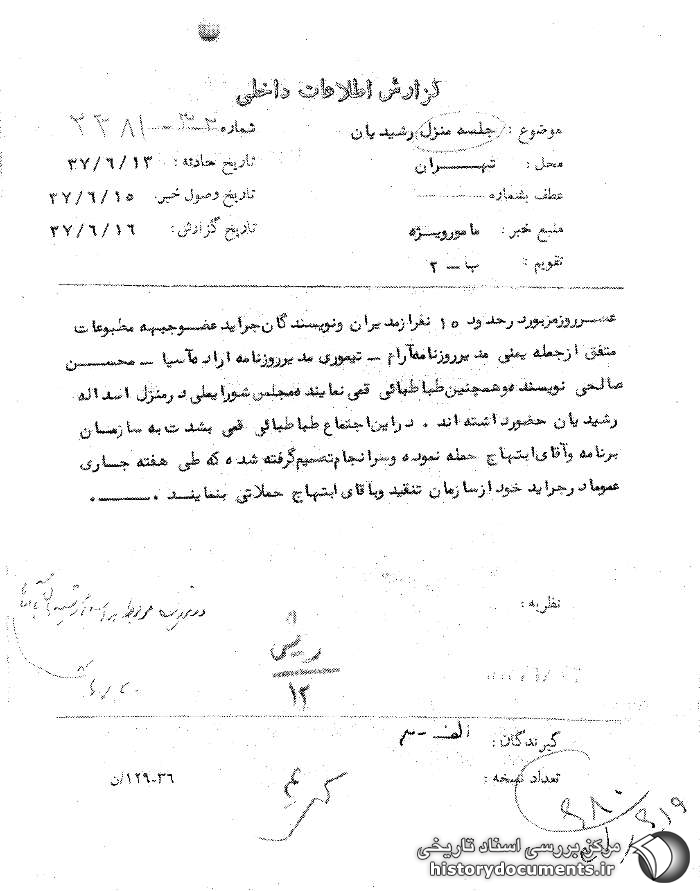 گزارش اطلاعات داخلی
موضوع : جلسه منزل رشیدیان
شماره
محل : تهران
تاریخ حادثه : ۳۷/۶/۱۳
عطف بشماره
تاریخ وصول خبر: ۳۷/۶/۱۵
منبع خبر : مامورویژه
تاریخ گزارش: ۳۷/۶/۱۶
تقویم : ب ـ ۲
عصرروزمزبوردرحدود ۱۵ نفرازمدیران ونویسندگان جرایدعضوجبهه مطبوعات
متفق ازجمله یمنی مدیرروزنامه آرام ـ تیموری مدیرروزنامه اراده آسیا ـ محسن
صالحی نویسنده وهمچنین طباطبائی قمی نماینده مجلس شورایملی درمنزل اسداله
رشیدیان حضورداشته اند . دراین اجتماع طباطبائی قمی بشدت به سازمان
برنامه وآقای ابتهاج حمله نموده وسرانجام تصمیم گرفته شده که طی هفته جاری
عموما درجراید خود ازسازمان تنقید وباقای ابتهاج حملاتی بنمایند .ــــــ.
نظریه :
۱۲
گیرندگان : الف ـ س
تعداد نسخه :
۱۲۹-۳۶/ن
مرکز بررسی اسناد تاریخی
historydocuments.ir